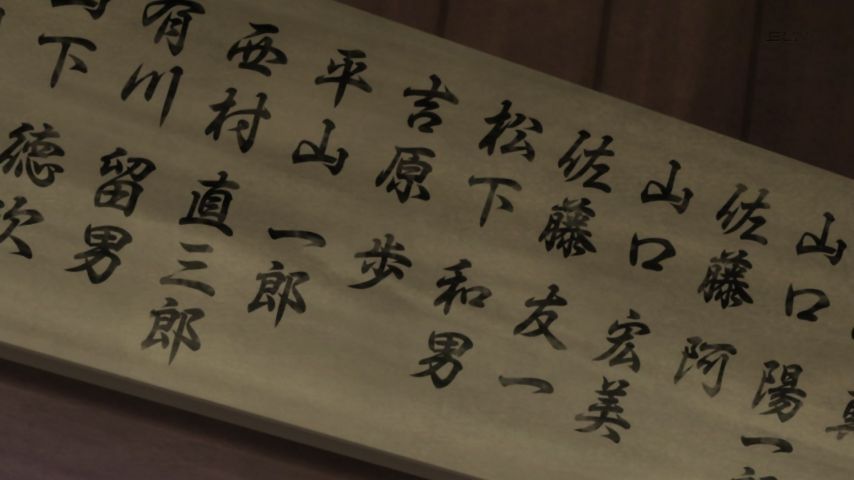 山口 陽一郎
佐藤 阿
山口 宏美
佐藤 友一
松下 和男
吉原 歩
平山 一郎
西村 直三郎
有川 留男
下 徳次